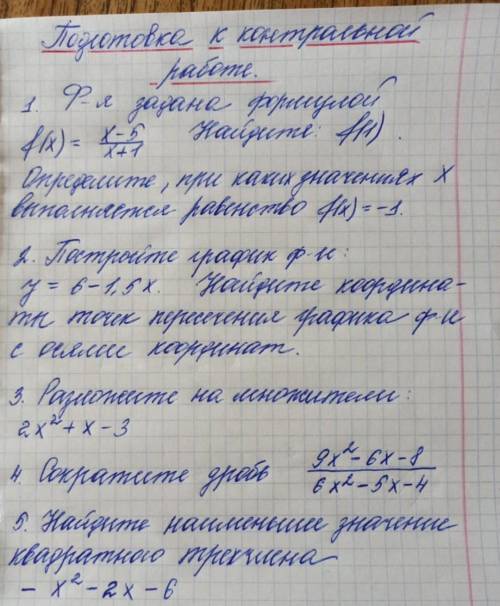 Подготовка к контральной
работе.
1. Ф-я задана формулой
f(x) = \frac{x-5}{x+1} Найдите: f(1).
Определите, при каких значениях х
выполняется равенство f(x) = -1.
2. Постройте график ф-и:
y = 6 - 1,5x. Найдите координа-
ты точек пересечения графика ф-и
с осями координат.
3. Разложите на множители:
2x² + x - 3
4. Сократите дробь \frac{9x²-6x-8}{6x²-5x-4}
5. Найдите наименьшее значение
квадратного трехчлена
- x² - 2x - 6